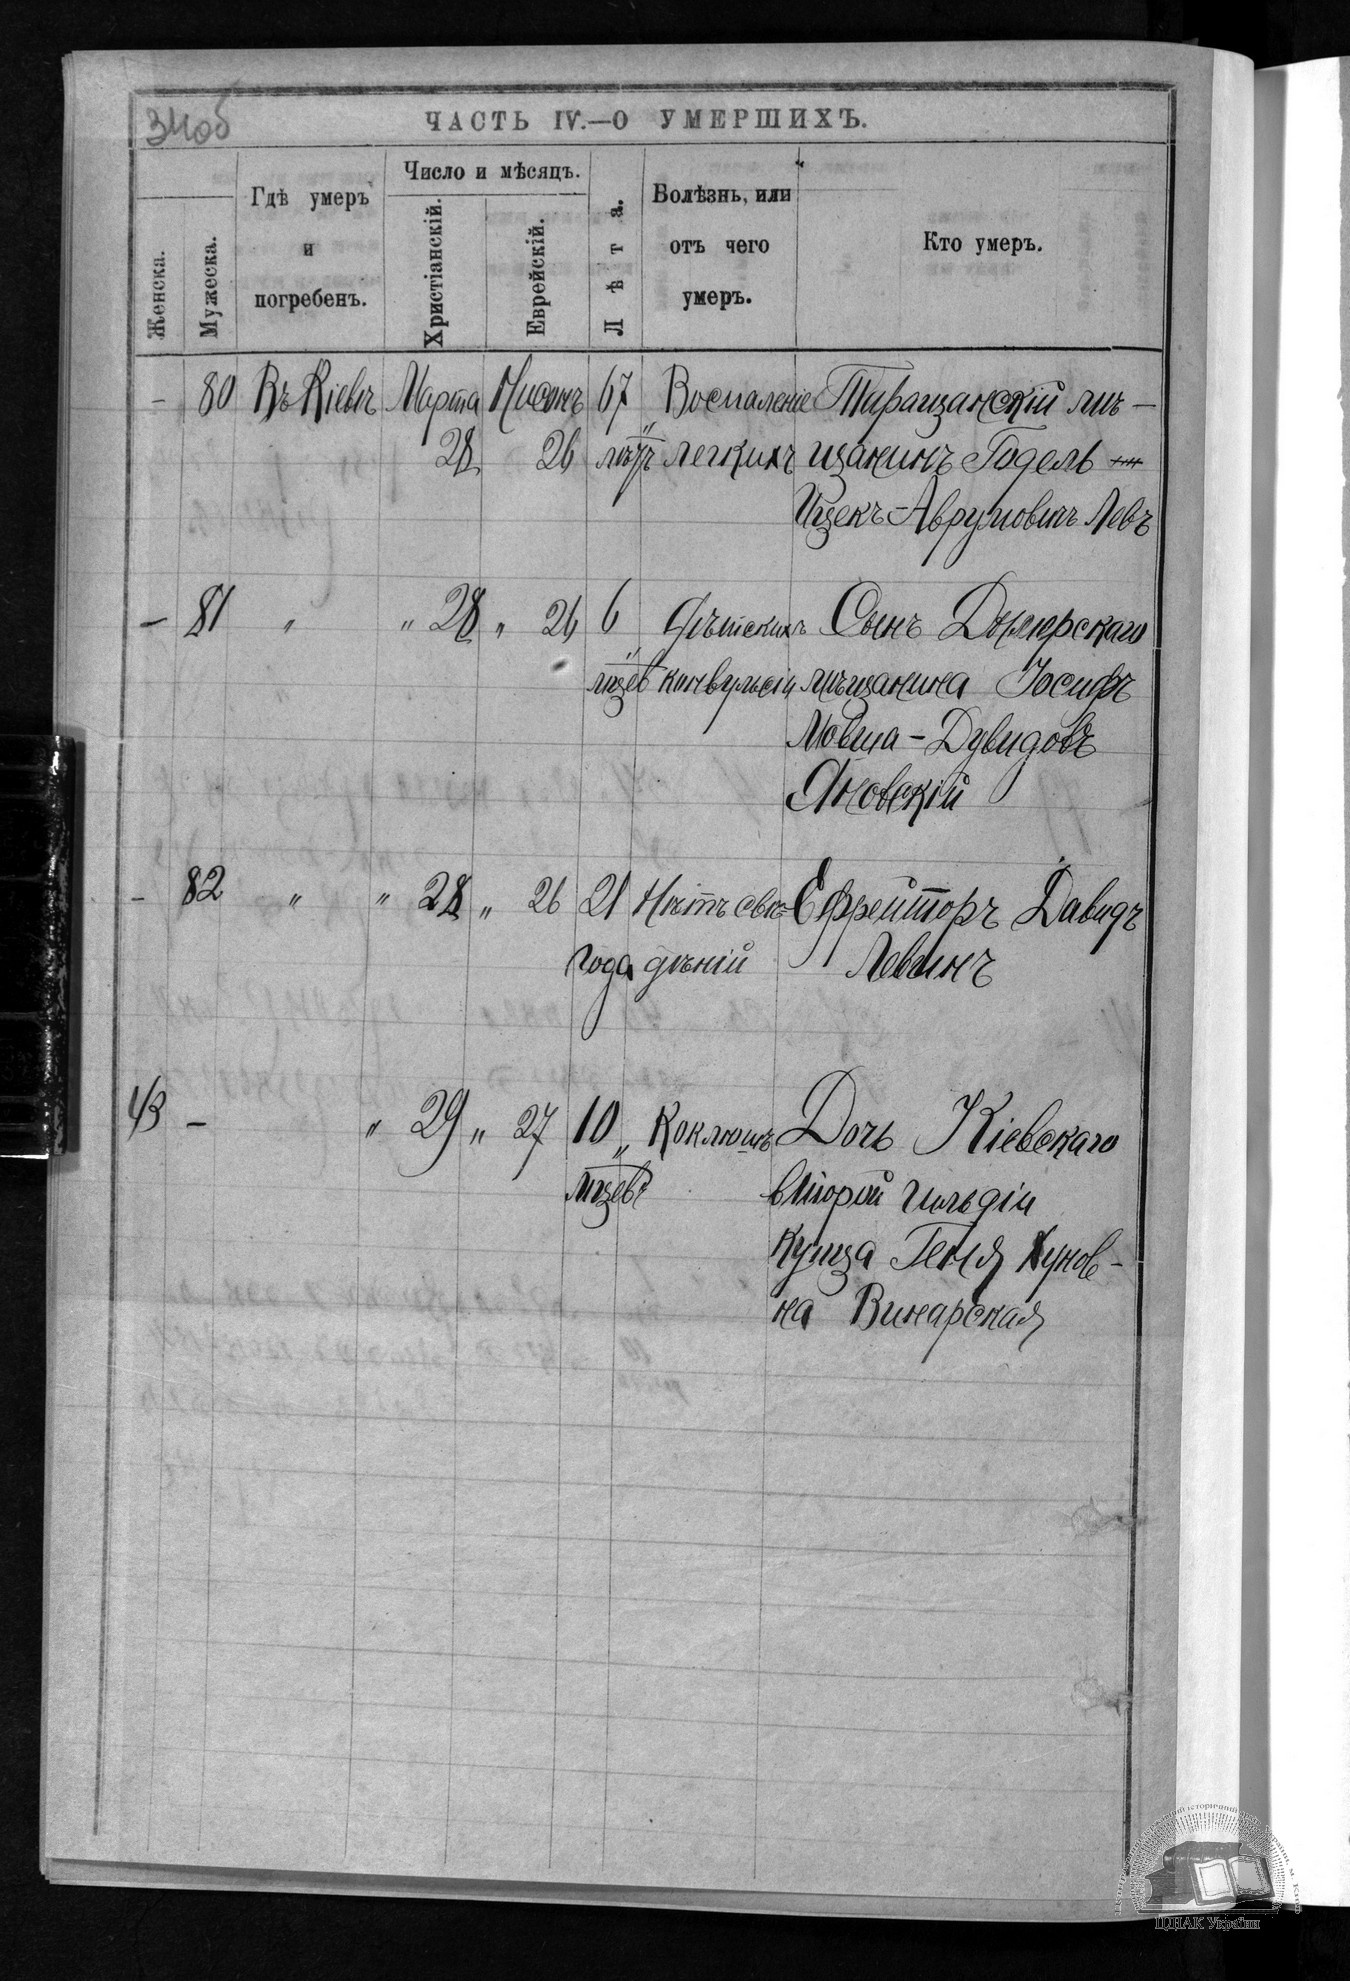 34об
ЧАСТЬ IV.—О УМЕРШИХЪ.
Женска.
Мужеска.
Гдѣ умеръ
и
погребенъ.
Число и мѣсяцъ.
Христіанскій.
Еврейскій.
Лѣта.
Болѣзнь, или
отъ чего
умеръ.
Кто умеръ.
– 80 Въ Кіевѣ Марта Нисонъ 67 Воспаленіе Таращанскій мѣ-
28 26 лѣтъ легкихъ щанинъ Годель
Ицекъ-Аврумовичъ Левъ
– 81 " " 28 " 26 6 Дѣтскихъ Сынъ Дымерскаго
мцев конвульсіи мѣщанина Іосифъ
Мовша-Дувидовъ
Яновскій
– 82 " " 28 " 26 21 Нѣтъ свѣ- Ефрейторъ Давидъ
года дѣній Левинъ
43 – " 29 " 27 10 Коклюшъ Дочь Кіевскаго
мцевъ второй гильдіи
купца Геня Хунов-
на Винарская
ЦДІАК України